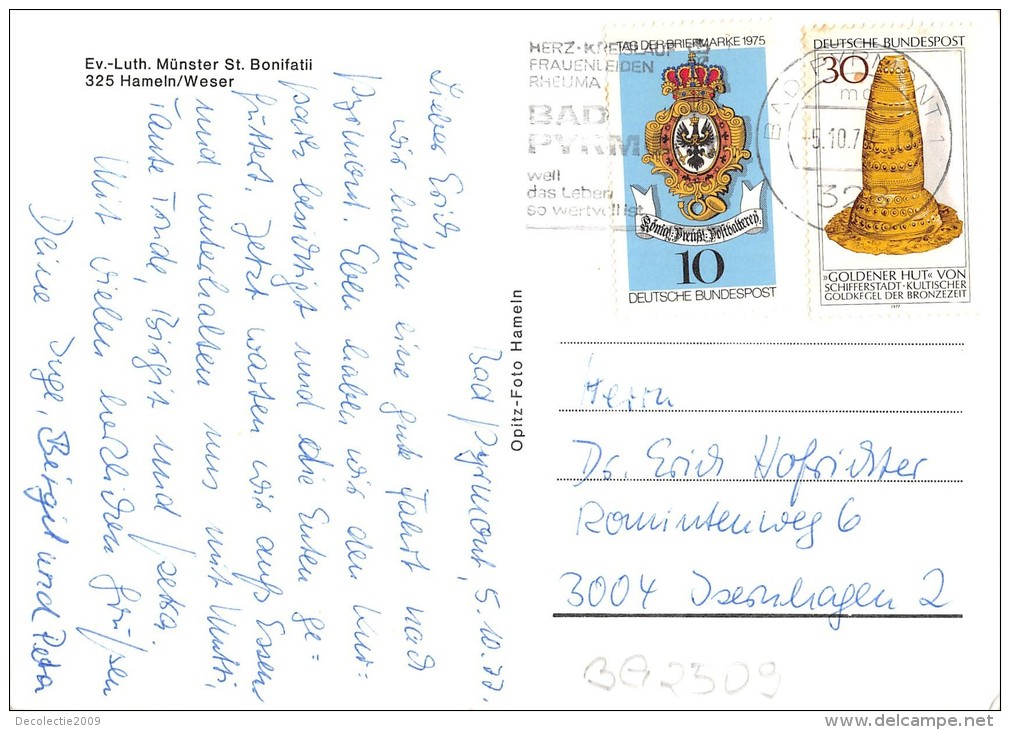 Ev.-Luth. Münster St. Bonifatii
325 Hameln/Weser
Bad Pyrmont, 5.10.77.
Lieber Erich,
wir hatten eine gute Fahrt nach
Pyrmont. Eben haben wir den Kur-
park besichtigt und die Enten ge-
füttert. Jetzt warten wir aufs Essen
und unterhalten uns mit Mutti,
Tante Trude, Birgit und Petra
Mit vielen herzlichen Grüßen
Deine Inge, Birgit und Petra
Opitz-Foto Hameln
HERZ-KREISLAUF
FRAUENLEIDEN
RHEUMA
BAD
PYRM
weil
das Leben
so wertvoll ist
TAG DER BRIEFMARKE 1975
Königl. Preußl. Posthalterey.
10
DEUTSCHE BUNDESPOST
DEUTSCHE BUNDESPOST
30
»GOLDENER HUT« VON
SCHIFFERSTADT · KULTISCHER
GOLDKEGEL DER BRONZEZEIT
1977
BAD PYRMONT 1
-5.10.77
328
Herrn
Dr. Erich Hofrichter
Romintenweg 6
3004 Isernhagen 2
BG2309
Decolectie2009
www.delcampe.net